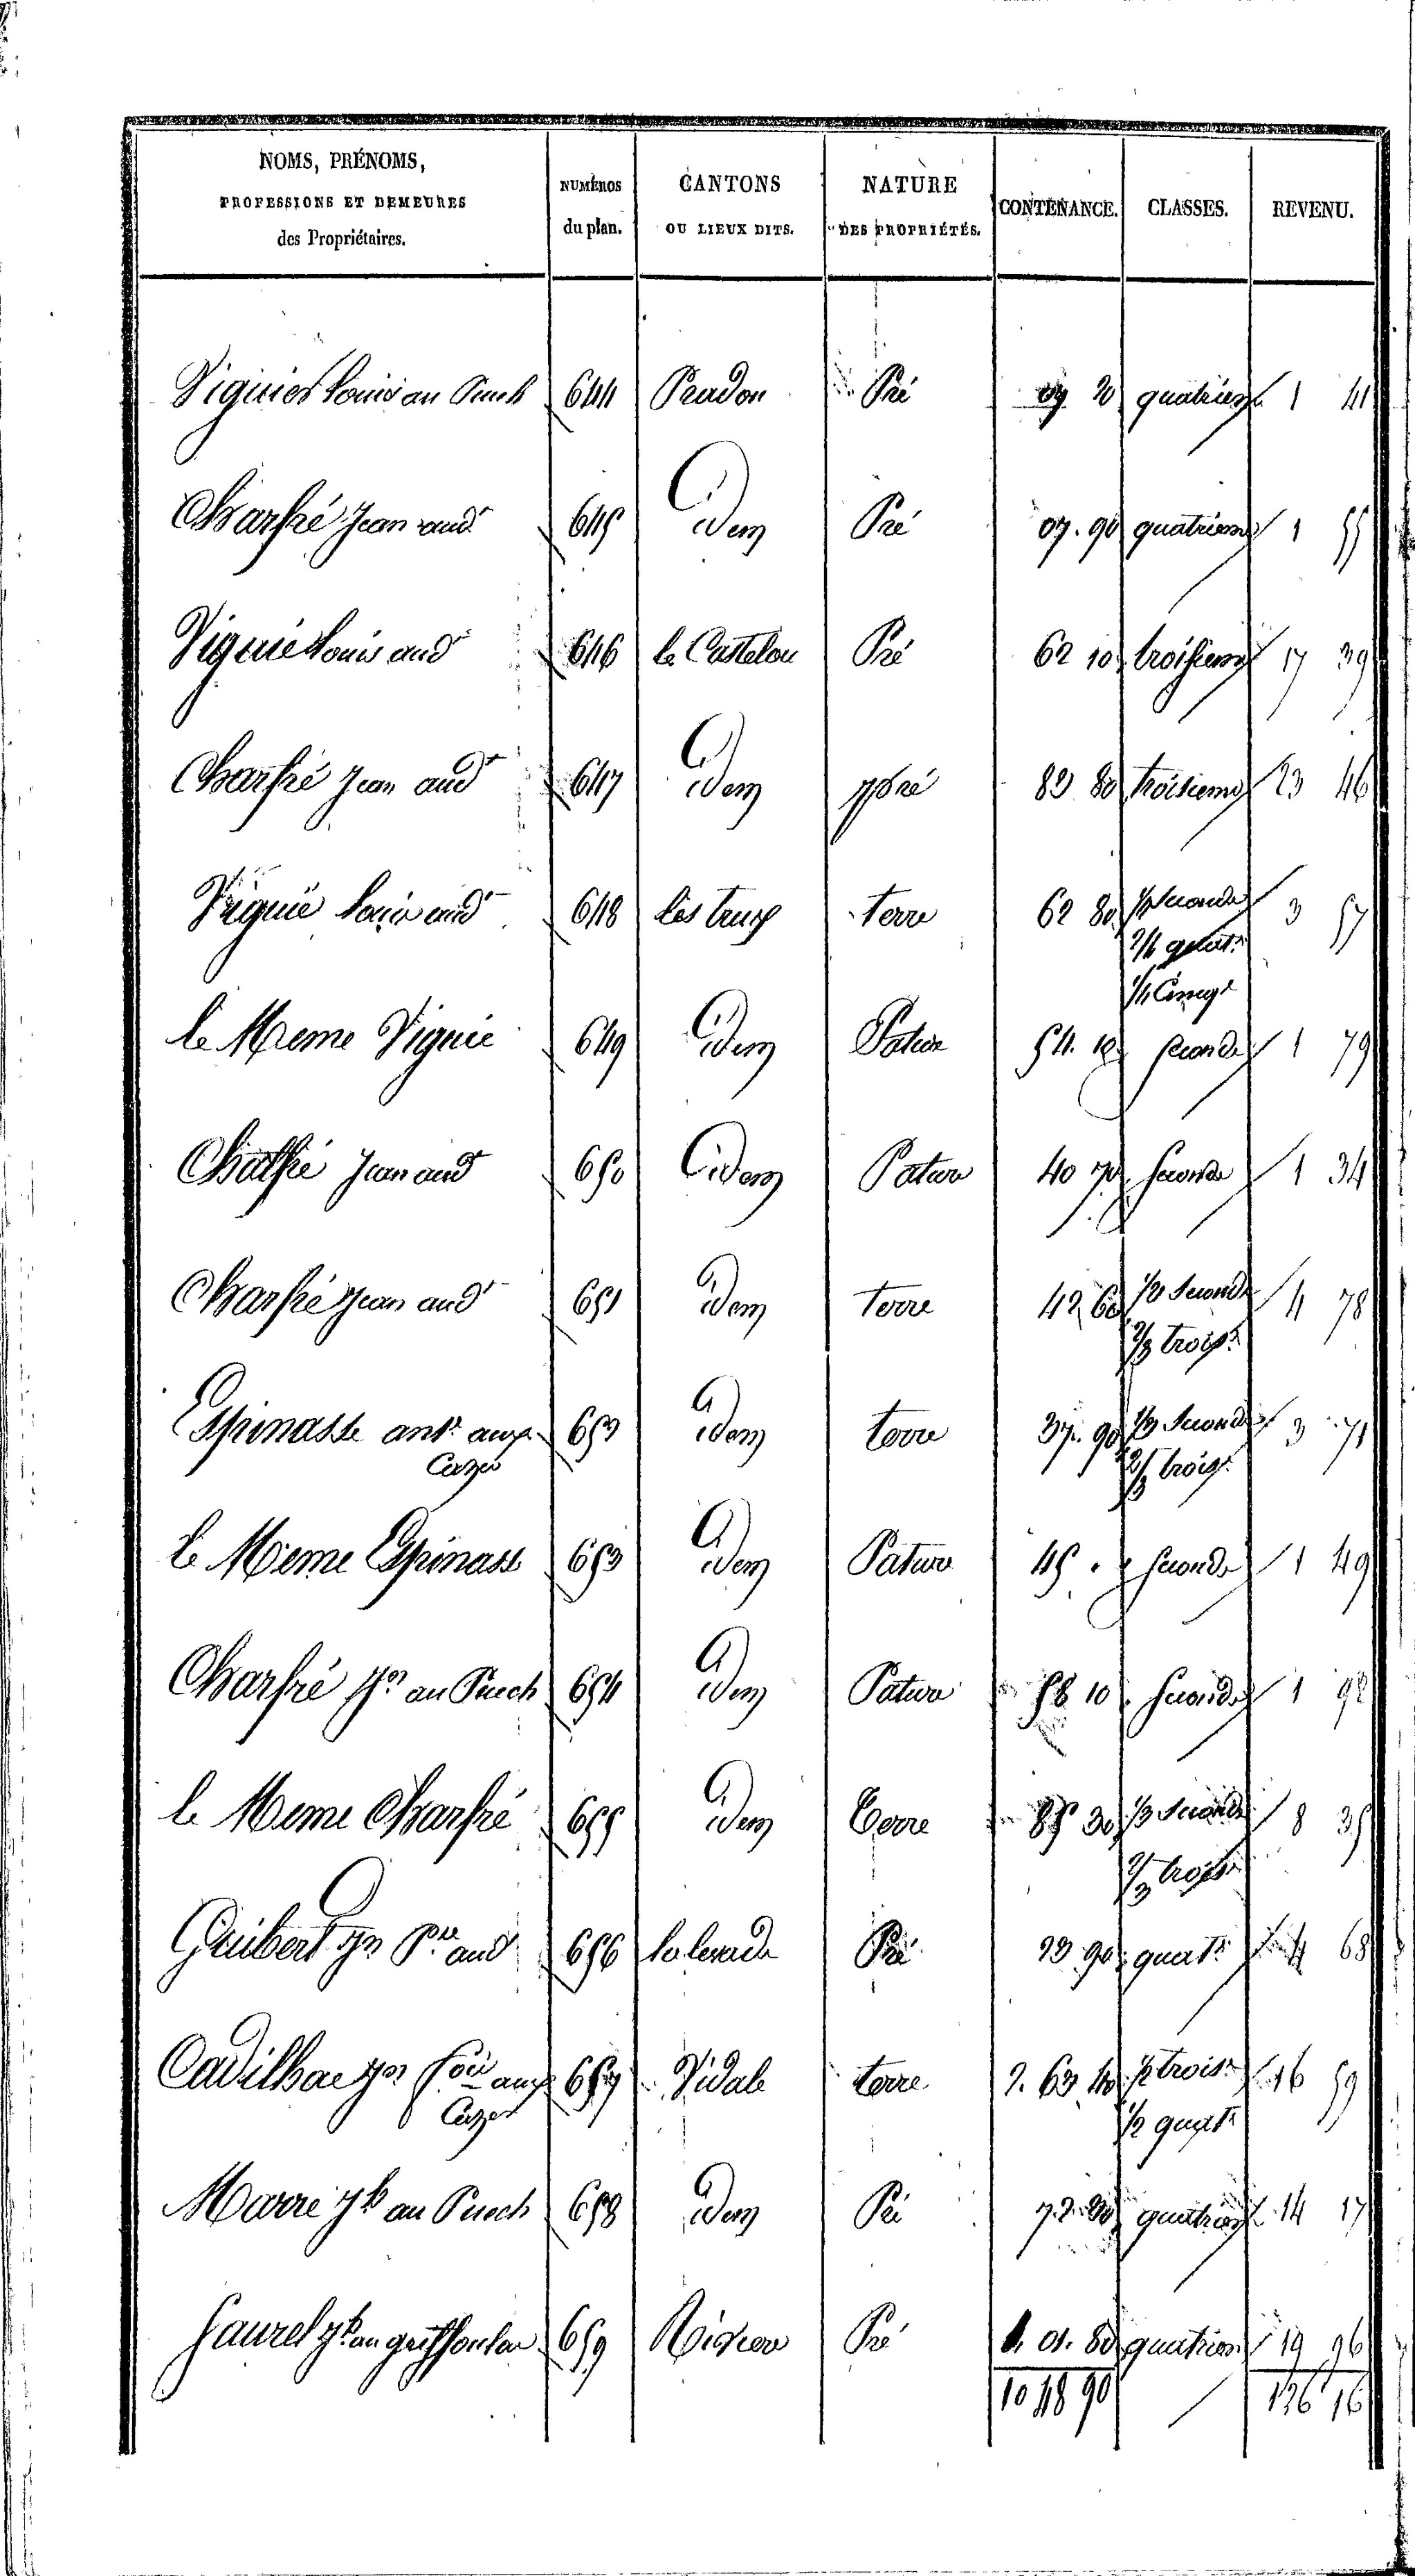 NOMS, PRÉNOMS,
PROFESSIONS ET DEMEURES
des Propriétaires.
NUMÉROS
du plan.
CANTONS
OU LIEUX DITS.
NATURE
DES PROPRIÉTÉS.
CONTENANCE.
CLASSES.
REVENU.
Viguier Louis au Puech 644 Pradou Pré 09 20 quatrieme 1 41
Charfré Jean aud.t 645 Idem Pré 07.90 quatrieme 1 55
Viguié Louis aud.t 646 le Castelou Pré 62 10 troisieme 17 39
Charfré Jean aud.t 647 Idem pré 83 80 troisieme 23 46
Viguié Louis aud.t 648 les terre 62 80 seconde 3 57
2/4 quat.e
1/4 Cinq.e
le Meme Viguié 649 Idem Pature 54. 10 seconde 1 79
Charfré Jean aud.t 650 Idem Pature 40 70 seconde 1 34
Charfré Jean aud.t 651 Idem terre 42 60 1/3 seconde 4 78
2/3 trois.e
Espinasse ant.e aux 652 Idem terre 37. 90 1/3 seconde 3 71
Cazes 2/3 trois.e
le Meme Espinasse 653 Idem Pature 45 . seconde 1 49
Charfré au Puech 654 Idem Pature 58 10 seconde 1 92
le Meme Charfré 655 Idem terre 85 30 1/3 seconde 8 35
2/3 trois.e
Guibert P.re aud.t 656 Pré 23 90 quat.e 4 68
Cadilhac aux 657 Vidale terre 2. 63 40 1/2 trois.e 16 59
Cazes 1/2 quat.e
Marre au Puech 658 Idem Pré 72 30 quatrieme 14 17
Jaurel 659 Pré 1. 01. 80 quatrieme 19 96
10 48 90 126 16